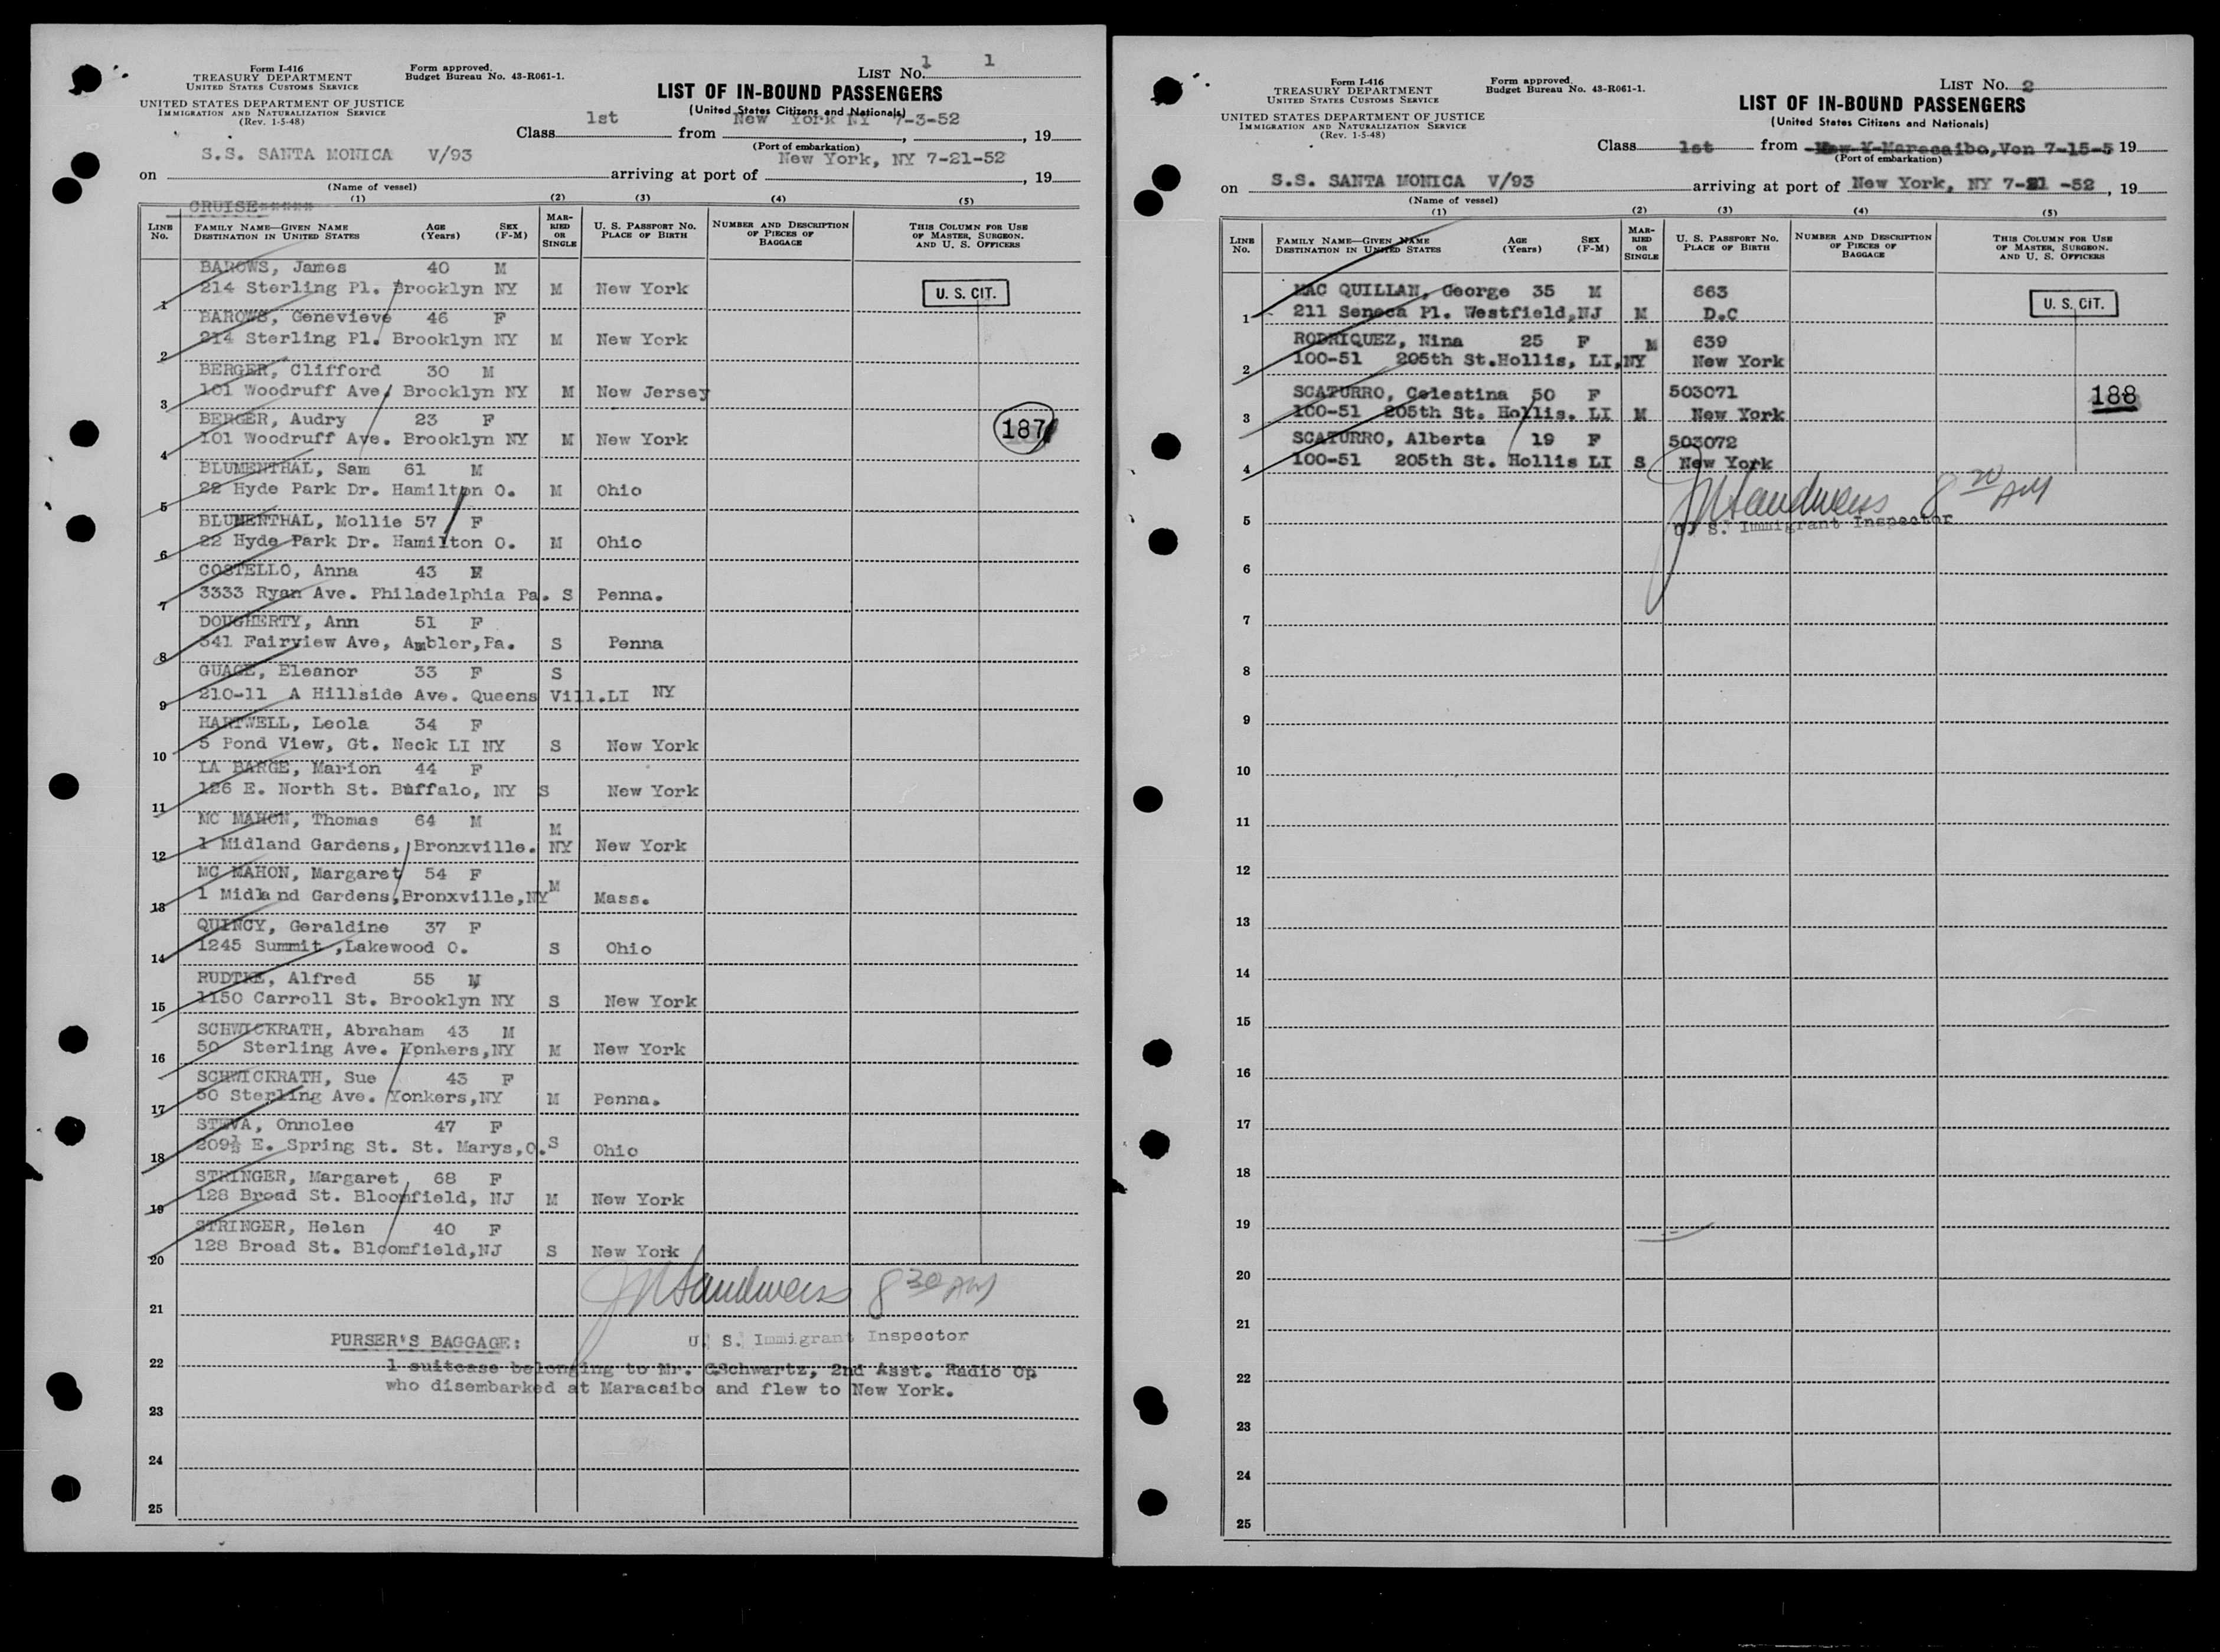 Form I-416
TREASURY DEPARTMENT
UNITED STATES CUSTOMS SERVICE
UNITED STATES DEPARTMENT OF JUSTICE
IMMIGRATION AND NATURALIZATION SERVICE
(Rev. 1-5-48)
Form approved.
Budget Bureau No. 43-R061-1.
LIST No. 1 1
LIST OF IN-BOUND PASSENGERS
(United States Citizens and Nationals)
Class 1st from New York NY 7-3-52, 19
(Port of embarkation)
on S.S. SANTA MONICA V/93 arriving at port of New York, NY 7-21-52, 19
(Name of vessel)
CRUISE*****
(1) (2) (3) (4) (5)
LINE No. FAMILY NAME—GIVEN NAME DESTINATION IN UNITED STATES AGE (Years) SEX (F-M) MARRIED OR SINGLE U. S. PASSPORT NO. PLACE OF BIRTH NUMBER AND DESCRIPTION OF PIECES OF BAGGAGE THIS COLUMN FOR USE OF MASTER, SURGEON, AND U. S. OFFICERS
BAROWS, James 40 M
1 214 Sterling Pl. Brooklyn NY M New York U. S. CIT.
BAROWS, Genevieve 46 F
2 214 Sterling Pl. Brooklyn NY M New York
BERGER, Clifford 30 M
3 101 Woodruff Ave. Brooklyn NY M New Jersey
BERGER, Audry 23 F 187
4 101 Woodruff Ave. Brooklyn NY M New York
BLUMENTHAL, Sam 61 M
5 22 Hyde Park Dr. Hamilton O. M Ohio
BLUMENTHAL, Mollie 57 F
6 22 Hyde Park Dr. Hamilton O. M Ohio
COSTELLO, Anna 43 F
7 3333 Ryan Ave. Philadelphia Pa. S Penna.
DOUGHERTY, Ann 51 F
8 341 Fairview Ave, Ambler,Pa. S Penna
GUAGE, Eleanor 33 F S
9 210-11 A Hillside Ave. Queens Vill.LI NY
HARTWELL, Leola 34 F
10 5 Pond View, Gt. Neck LI NY S New York
LA BARGE, Marion 44 F
11 126 E. North St. Buffalo, NY S New York
MC MAHON, Thomas 64 M M
12 1 Midland Gardens, Bronxville. NY New York
MC MAHON, Margaret 54 F M
13 1 Midland Gardens,Bronxville,NY Mass.
QUINCY, Geraldine 37 F
14 1245 Summit ,Lakewood O. S Ohio
RUDTKE, Alfred 55 M
15 1150 Carroll St. Brooklyn NY S New York
SCHWICKRATH, Abraham 43 M
16 50 Sterling Ave. Yonkers,NY M New York
SCHWICKRATH, Sue 43 F
17 50 Sterling Ave. Yonkers,NY M Penna.
STEVA, Onnolee 47 F
18 209½ E. Spring St. St. Marys,O. S Ohio
STRINGER, Margaret 68 F
19 128 Broad St. Bloomfield, NJ M New York
STRINGER, Helen 40 F
20 128 Broad St. Bloomfield,NJ S New York
21 8 30 AM
PURSER'S BAGGAGE: U. S. Immigrant Inspector
22 1 suitcase belonging to Mr. CSchwartz, 2nd Asst. Radio Op
who disembarked at Maracaibo and flew to New York.
23
24
25
Form I-416
TREASURY DEPARTMENT
UNITED STATES CUSTOMS SERVICE
UNITED STATES DEPARTMENT OF JUSTICE
IMMIGRATION AND NATURALIZATION SERVICE
(Rev. 1-5-48)
Form approved.
Budget Bureau No. 43-R061-1.
LIST No. 2
LIST OF IN-BOUND PASSENGERS
(United States Citizens and Nationals)
Class 1st from Maracaibo,Ven 7-15-5 19
(Port of embarkation)
on S.S. SANTA MONICA V/93 arriving at port of New York, NY 7-21 -52, 19
(Name of vessel)
(1) (2) (3) (4) (5)
LINE No. FAMILY NAME—GIVEN NAME DESTINATION IN UNITED STATES AGE (Years) SEX (F-M) MARRIED OR SINGLE U. S. PASSPORT NO. PLACE OF BIRTH NUMBER AND DESCRIPTION OF PIECES OF BAGGAGE THIS COLUMN FOR USE OF MASTER, SURGEON, AND U. S. OFFICERS
MAC QUILLAN, George 35 M 663 U. S. CIT.
1 211 Seneca Pl. Westfield,NJ M D.C
RODRIQUEZ, Nina 25 F M 639
2 100-51 205th St.Hollis, LI,NY New York
SCATURRO, Celestina 50 F 503071 188
3 100-51 205th St. Hollis. LI M New York
SCATURRO, Alberta 19 F 503072
4 100-51 205th St. Hollis LI S New York
8 20 AM
5 U. S. Immigrant Inspector
6
7
8
9
10
11
12
13
14
15
16
17
18
19
20
21
22
23
24
25